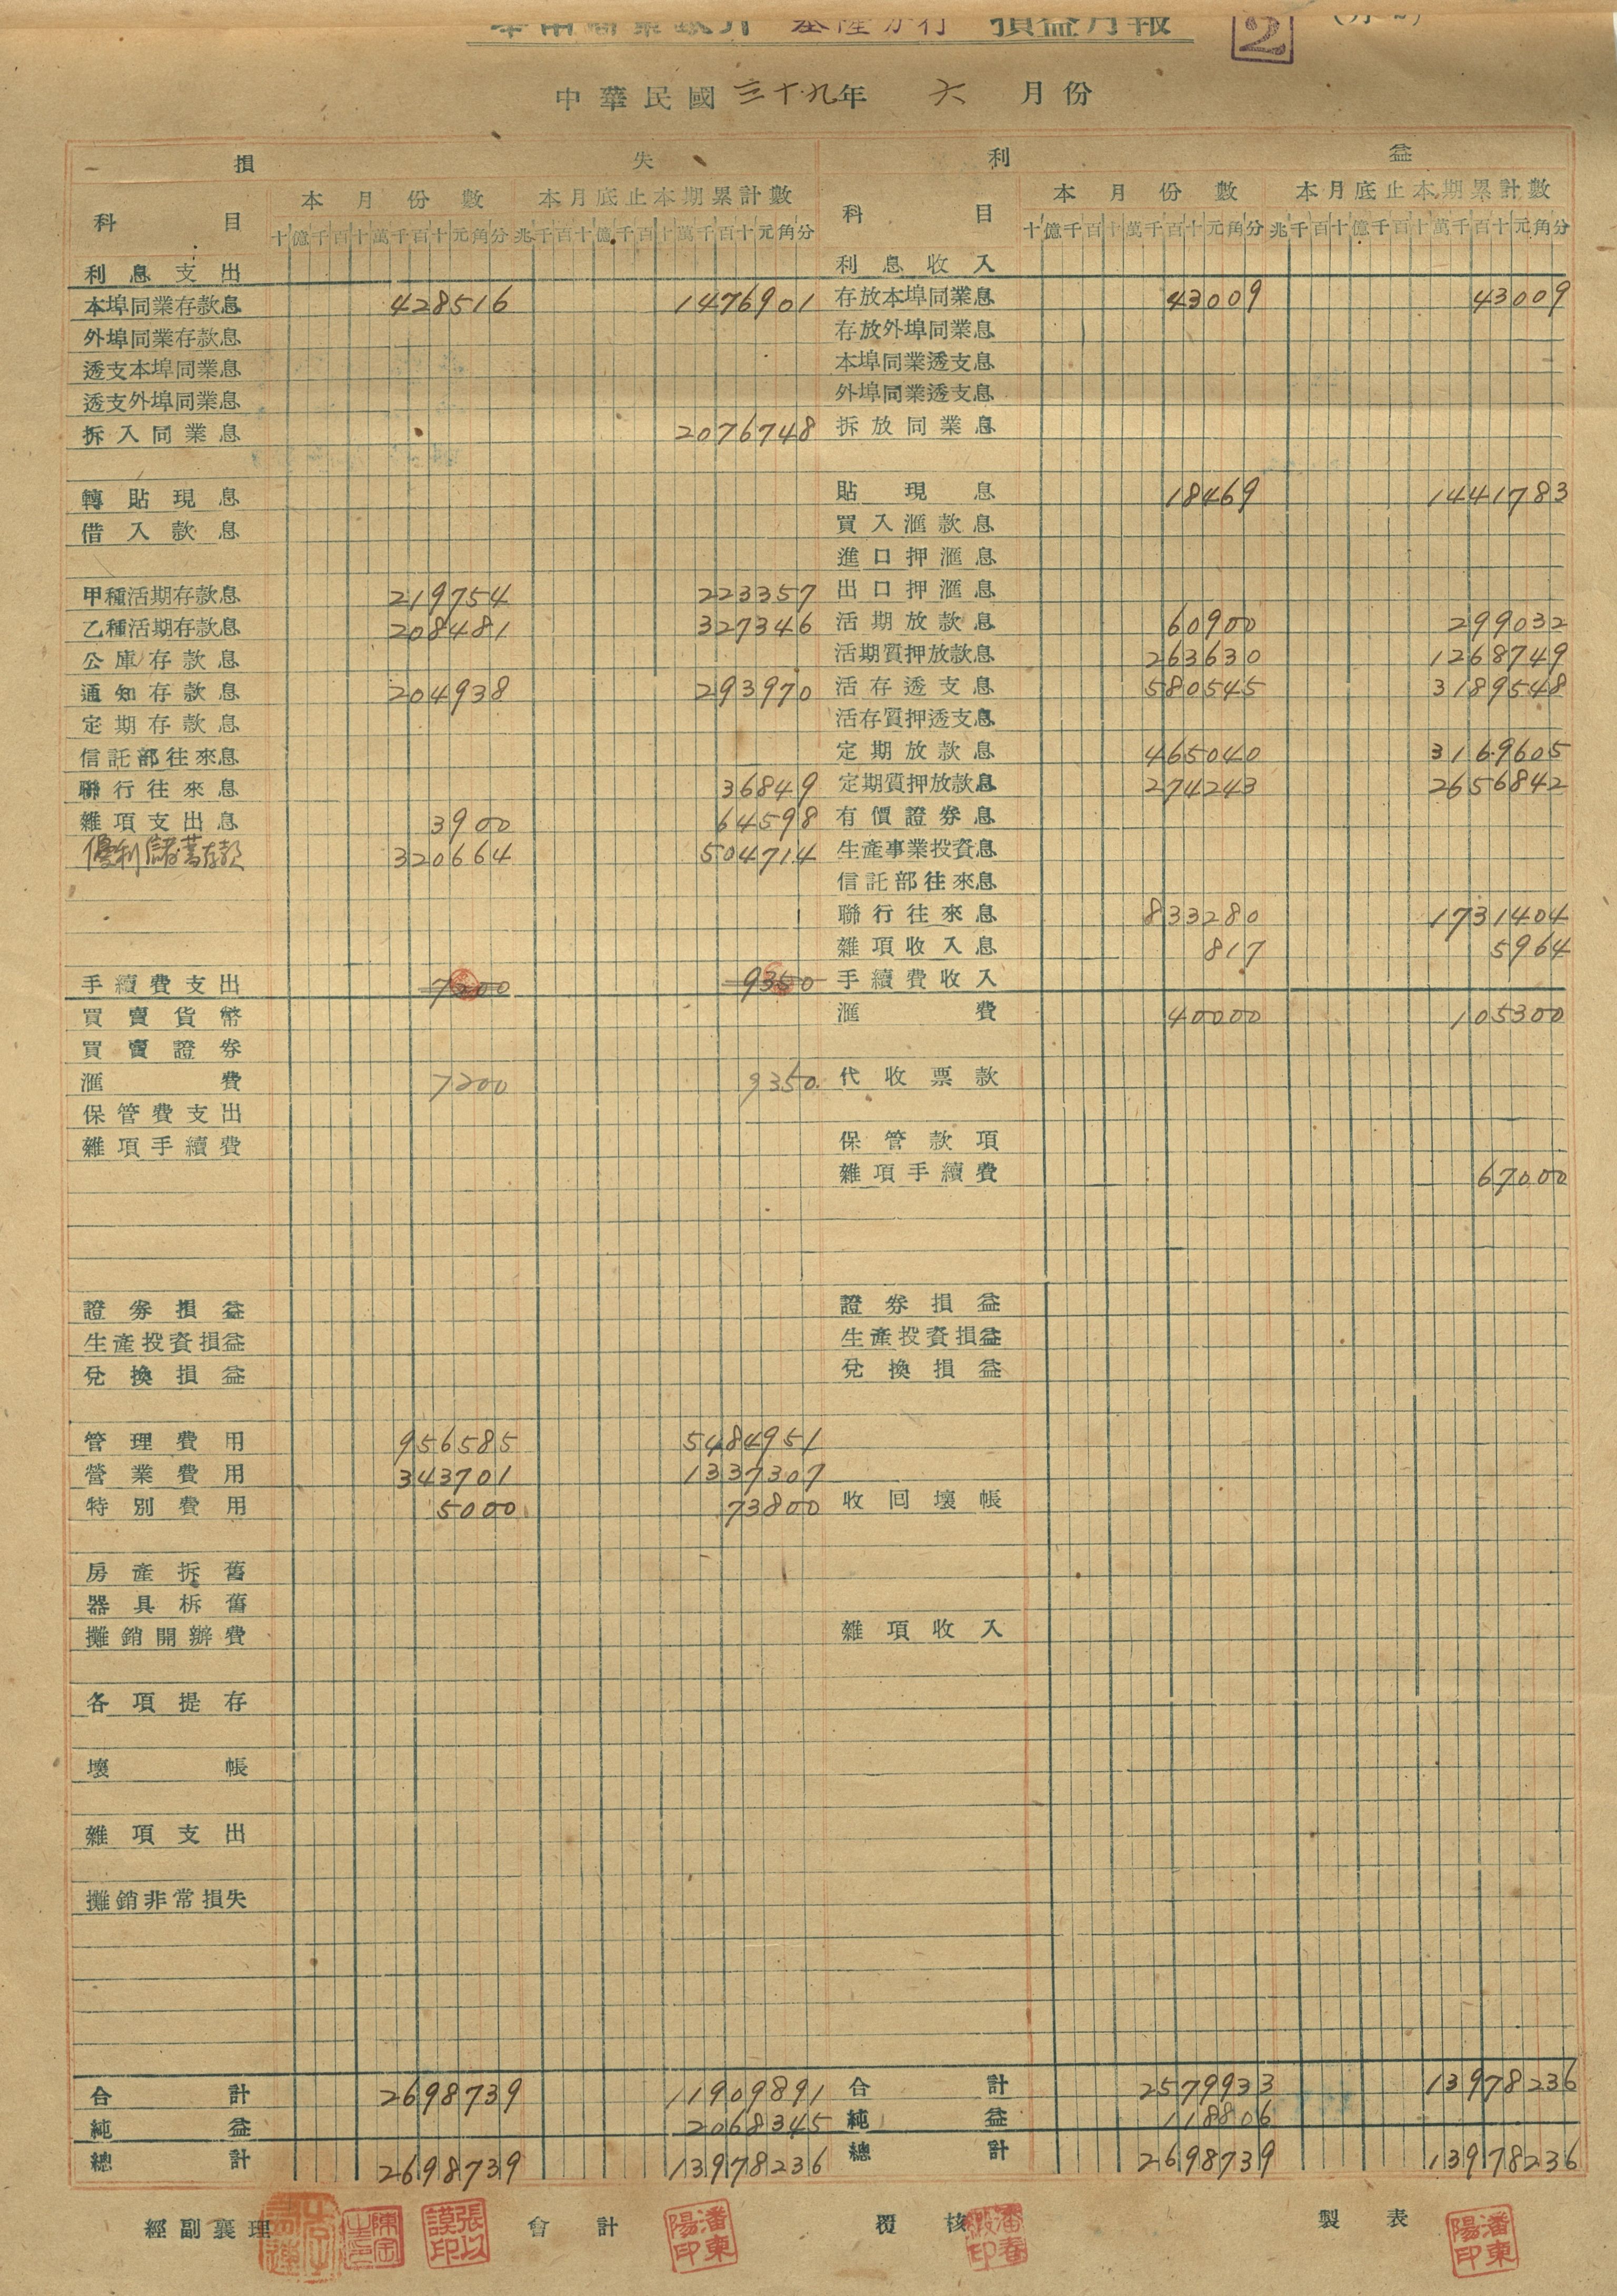 華南商業銀行 基隆分行 損益月報 2
中華民國三十九年 六 月份
損 失 利 益
科目 本月份數 本月底止本期累計數 科目 本月份數 本月底止本期累計數
十億千百十萬千百十元角分 兆千百十億千百十萬千百十元角分 十億千百十萬千百十元角分 兆千百十億千百十萬千百十元角分
利息支出 利息收入
本埠同業存款息 428516 1476901 存放本埠同業息 43009 43009
外埠同業存款息 存放外埠同業息
透支本埠同業息 本埠同業透支息
透支外埠同業息 外埠同業透支息
拆入同業息 2076748 拆放同業息
轉貼現息 貼現息 18469 1441783
借入款息 買入滙款息
進口押滙息
甲種活期存款息 219754 223357 出口押滙息
乙種活期存款息 208481 327346 活期放款息 60900 299032
公庫存款息 活期質押放款息 263630 1268749
通知存款息 204938 293970 活存透支息 580545 3189548
定期存款息 活存質押透支息
信託部往來息 定期放款息 465040 3169605
聯行往來息 36849 定期質押放款息 274243 2656842
雜項支出息 3900 64598 有價證券息
優利儲蓄存款 320664 504714 生產事業投資息
信託部往來息
聯行往來息 833280 1731404
雜項收入息 817 5964
手續費支出 7200 9350 手續費收入
買賣貨幣 滙費 40000 105300
買賣證券
滙費 7200 9350 代收票款
保管費支出
雜項手續費 保管款項
雜項手續費 67000
證券損益 證券損益
生產投資損益 生產投資損益
兌換損益 兌換損益
管理費用 956585 5484951
營業費用 343701 1337307
特別費用 5000 73800 收回壞帳
房產拆舊
器具柝舊
攤銷開辦費 雜項收入
各項提存
壞帳
雜項支出
攤銷非常損失
合計 2698739 11909891 合計 2579933 13978236
純益 2068345 純益 118806
總計 2698739 13978236 總計 2698739 13978236
經副襄理 張以謨印 會計 潘東陽印 覆核 製表 潘東陽印